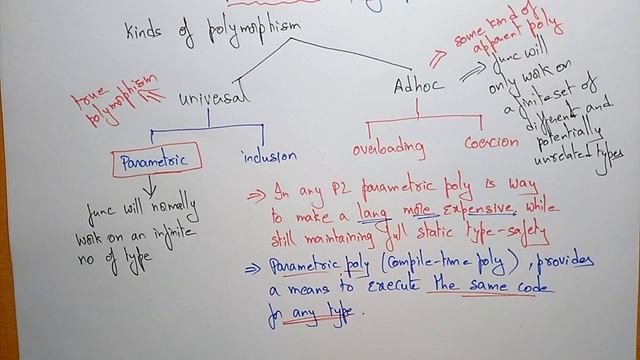 Kinds of polymorphism
true
polymorphism
universal
Adhoc
some kind of
apparent poly
func will
only work on
a finite set of
different and
potentially
unrelated types
Parametric
inclusion
overloading
Coercion
func will normally
work on an infinite
no of type
⇒ In any PL parametric poly is way
to make a lang more expensive, while
still maintaining full static type-safety
⇒ Parametric poly (compile-time poly), provides
a means to execute the same code
for any type.